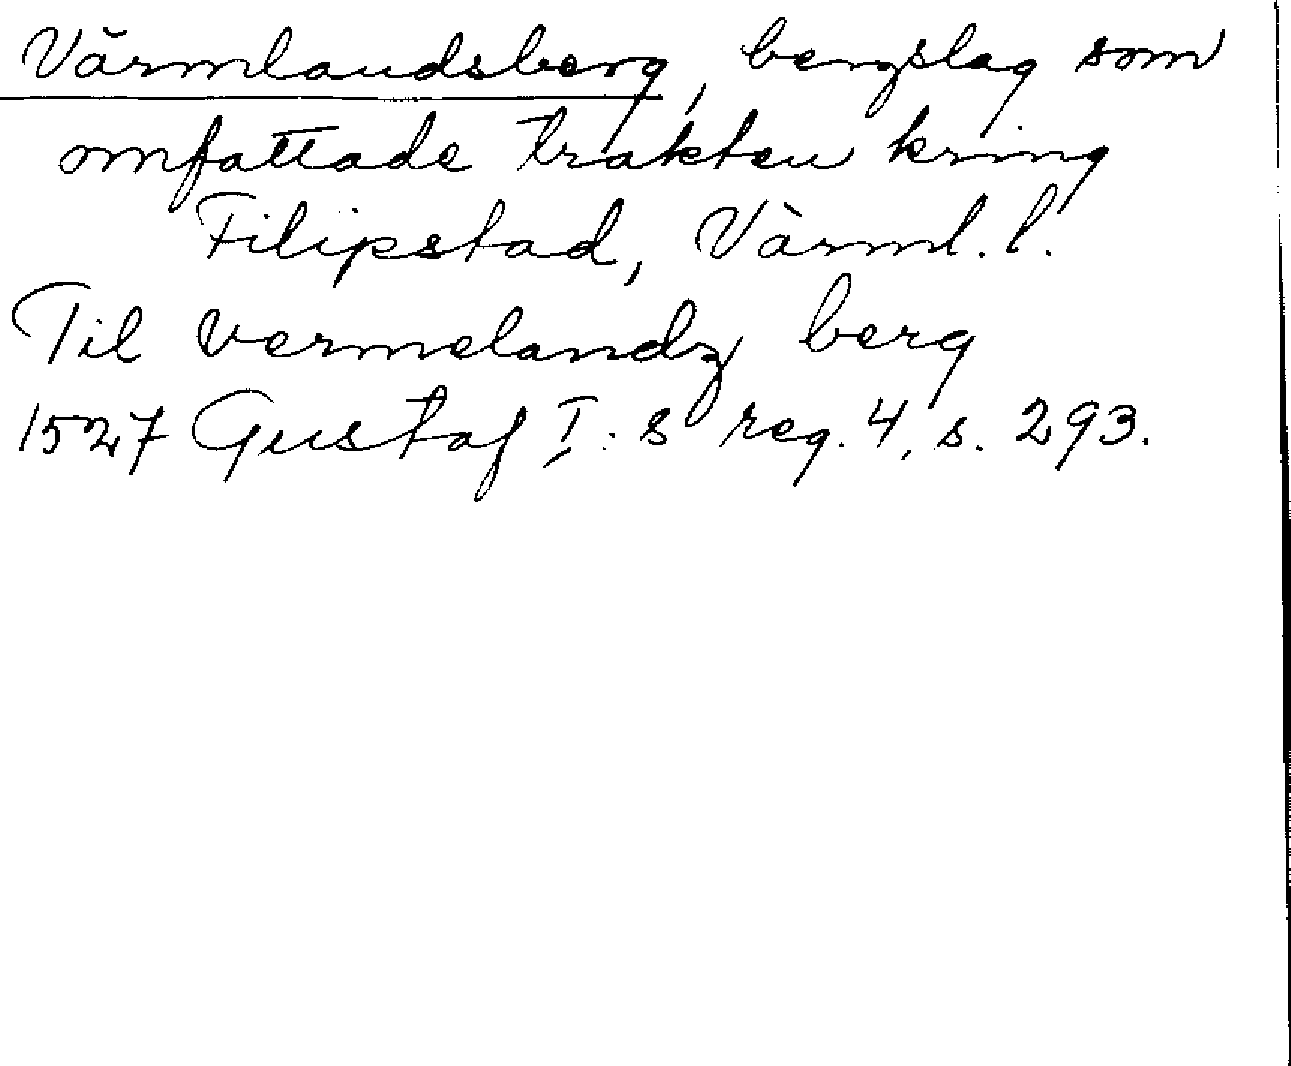 Värmlandsberg, bergslag som
omfattade trakten kring
Filipstad, Värml. l.
Til vermelandz berg
1527 Gustaf I:s reg. 4, s. 293.